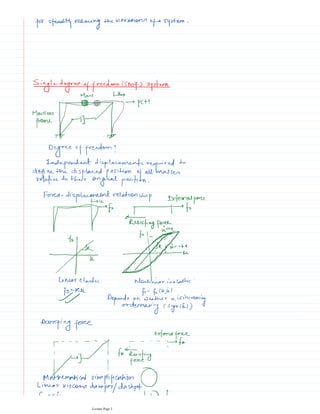 for steadily reducing the vibrations of a system.
Single degree of freedom (SDoF) system
Mass
p(t)
Massless
frame
Degree of freedom?
Independent displacements required to
define the displaced position of all masses
relative to their original position.
Force-displacement relationship
External force
fs
Resisting force
fs
fs
k
u
u
Linear elastic
Nonlinear inelastic
fs = ku
Depends on whether u is increasing
or decreasing
Damping force
External force
Resisting
force
Mathematical simplification
Linear viscous damper/dashpot
Lecture Page 2